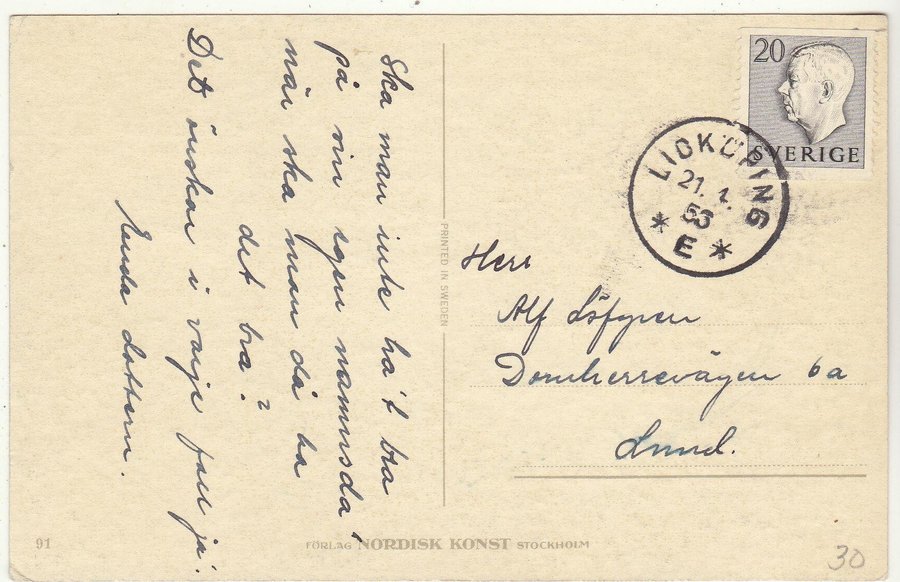 Ska man inte ha't bra
på sin egen namnsda'
när ska man då ha
det bra?
Det önskar i varje fall ja'.
Enda dottern.
PRINTED IN SWEDEN
20
SVERIGE
LIDKÖPING
21. 1.
56
* E *
Herr
Alf Löfgren
Domherrevägen 6a
Lund.
91
FÖRLAG NORDISK KONST STOCKHOLM
30